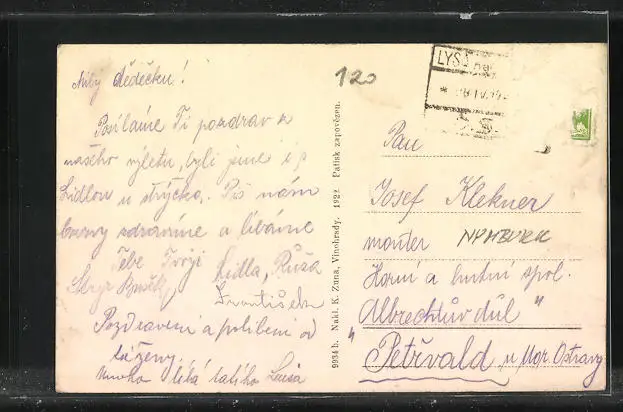 Milý dědečku!
Posíláme Ti pozdrav z
našeho výletu, byli jsme i s
Lidlou u strýčka. Piš nám
zdravíme a líbáme
Tebe Tvoji Lidla, Růža
Strýc
František
Pozdravení a políbení od
ženy.
Mnoho líbá tatího
120
9934 b. Nakl. K. Zuna, Vinohrady. 1922 Patisk zapovězen.
LYSÁ
Pan
Josef Klekner
montér NYMBURK
Horní a hutní spol.
„Albrechtův důl"
Petřvald u Mor. Ostravy